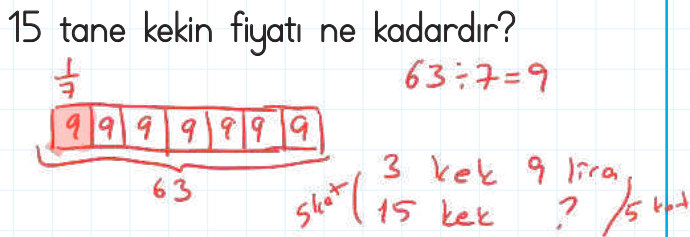 15 tane kekin fiyatı ne kadardır?
1/7
63÷7=9
9 9 9 9 9 9 9
63
3 kek 9 lira
5 kat 15 kek ? 5 kat